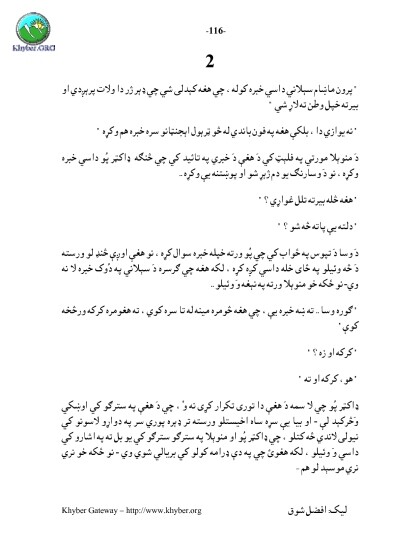 Khyber.ORG
-116-
2
" پرون ماښام سېلاني داسي خبره کوله ، چي هغه کېدلی شي چي ډېر ژر دا ولات پرېږدي او
بيرته خپل وطن ته لاړ شي "
" نه يوازي دا ، بلکې هغه په فون باندي له څو ټرېول اېجنټانو سره خبره هم وکړه "
د منوېلا مورني په فلېټ کي د هغې د خبري په تائيد کي چي څنګه ډاکټر پُو داسي خبره
وکړه ، نو د وسارنګ يو دم ژېړ شو او پوښتنه يې وکړه ..
" هغه څله بيرته تلل غواړي ؟ "
" دلته يې پاته څه شو ؟ "
د وسا د تپوس په ځواب کي چي پُو ورته خپله خبره سوال کړه ، نو هغې اوږې څنډ لو ورسته
د څه وئيلو په ځای خله داسي کړه کړه ، لکه هغه چي ګرسره د سېلاني په دُوک خبره لا نه
وي-نو ځکه خو منوېلا ورته په نېغه وَ وئيلو ..
" ګوره وسا .. ته ښه خبره يې ، چي هغه څومره مينه له تا سره کوي ، ته هغومره کرکه ورڅخه
کوې "
" کرکه او زه ؟ "
" هو ، کرکه او ته "
ډاکټر پُو چي لا سمه د هغې دا توری تکرار کړی نه وُ ، چي د هغې په سترګو کي اوښکي
وَځرکېد لې - او بيا يې سړه ساه اخيستلو ورسته تر ډېره پوري سر په دواړو لاسونو کي
نيولی لاندي څه کتلو ، چي ډاکټر پُو او منوېلا په سترګو سترګو کي يو بل ته په اشارو کي
داسي وَ وئيلو ، لکه هغوئ چي په دې ډرامه کولو کي بريالي شوي وي - نو ځکه خو نري
نري موسېد لو هم -
Khyber Gateway – http://www.khyber.org
ليک: افضل شوق